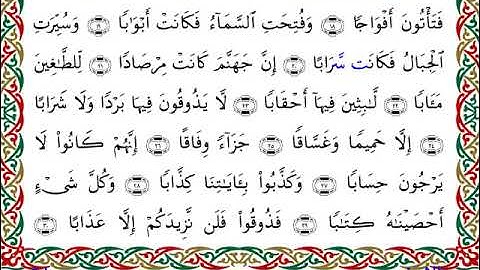 فَتَأْتُونَ أَفْوَاجًا ١٨ وَفُتِحَتِ ٱلسَّمَآءُ فَكَانَتْ أَبْوَٰبًا ١٩ وَسُيِّرَتِ
ٱلْجِبَالُ فَكَانَت سَّرَابًا ٢٠ إِنَّ جَهَنَّمَ كَانَتْ مِرْصَادًا ٢١ لِّلطَّٰغِينَ
مَـَٔابًا ٢٢ لَّٰبِثِينَ فِيهَآ أَحْقَابًا ٢٣ لَّا يَذُوقُونَ فِيهَا بَرْدًا وَلَا شَرَابًا
٢٤ إِلَّا حَمِيمًا وَغَسَّاقًا ٢٥ جَزَآءً وِفَاقًا ٢٦ إِنَّهُمْ كَانُوا۟ لَا
يَرْجُونَ حِسَابًا ٢٧ وَكَذَّبُوا۟ بِـَٔايَٰتِنَا كِذَّابًا ٢٨ وَكُلَّ شَىْءٍ
أَحْصَيْنَٰهُ كِتَٰبًا ٢٩ فَذُوقُوا۟ فَلَن نَّزِيدَكُمْ إِلَّا عَذَابًا ٣٠